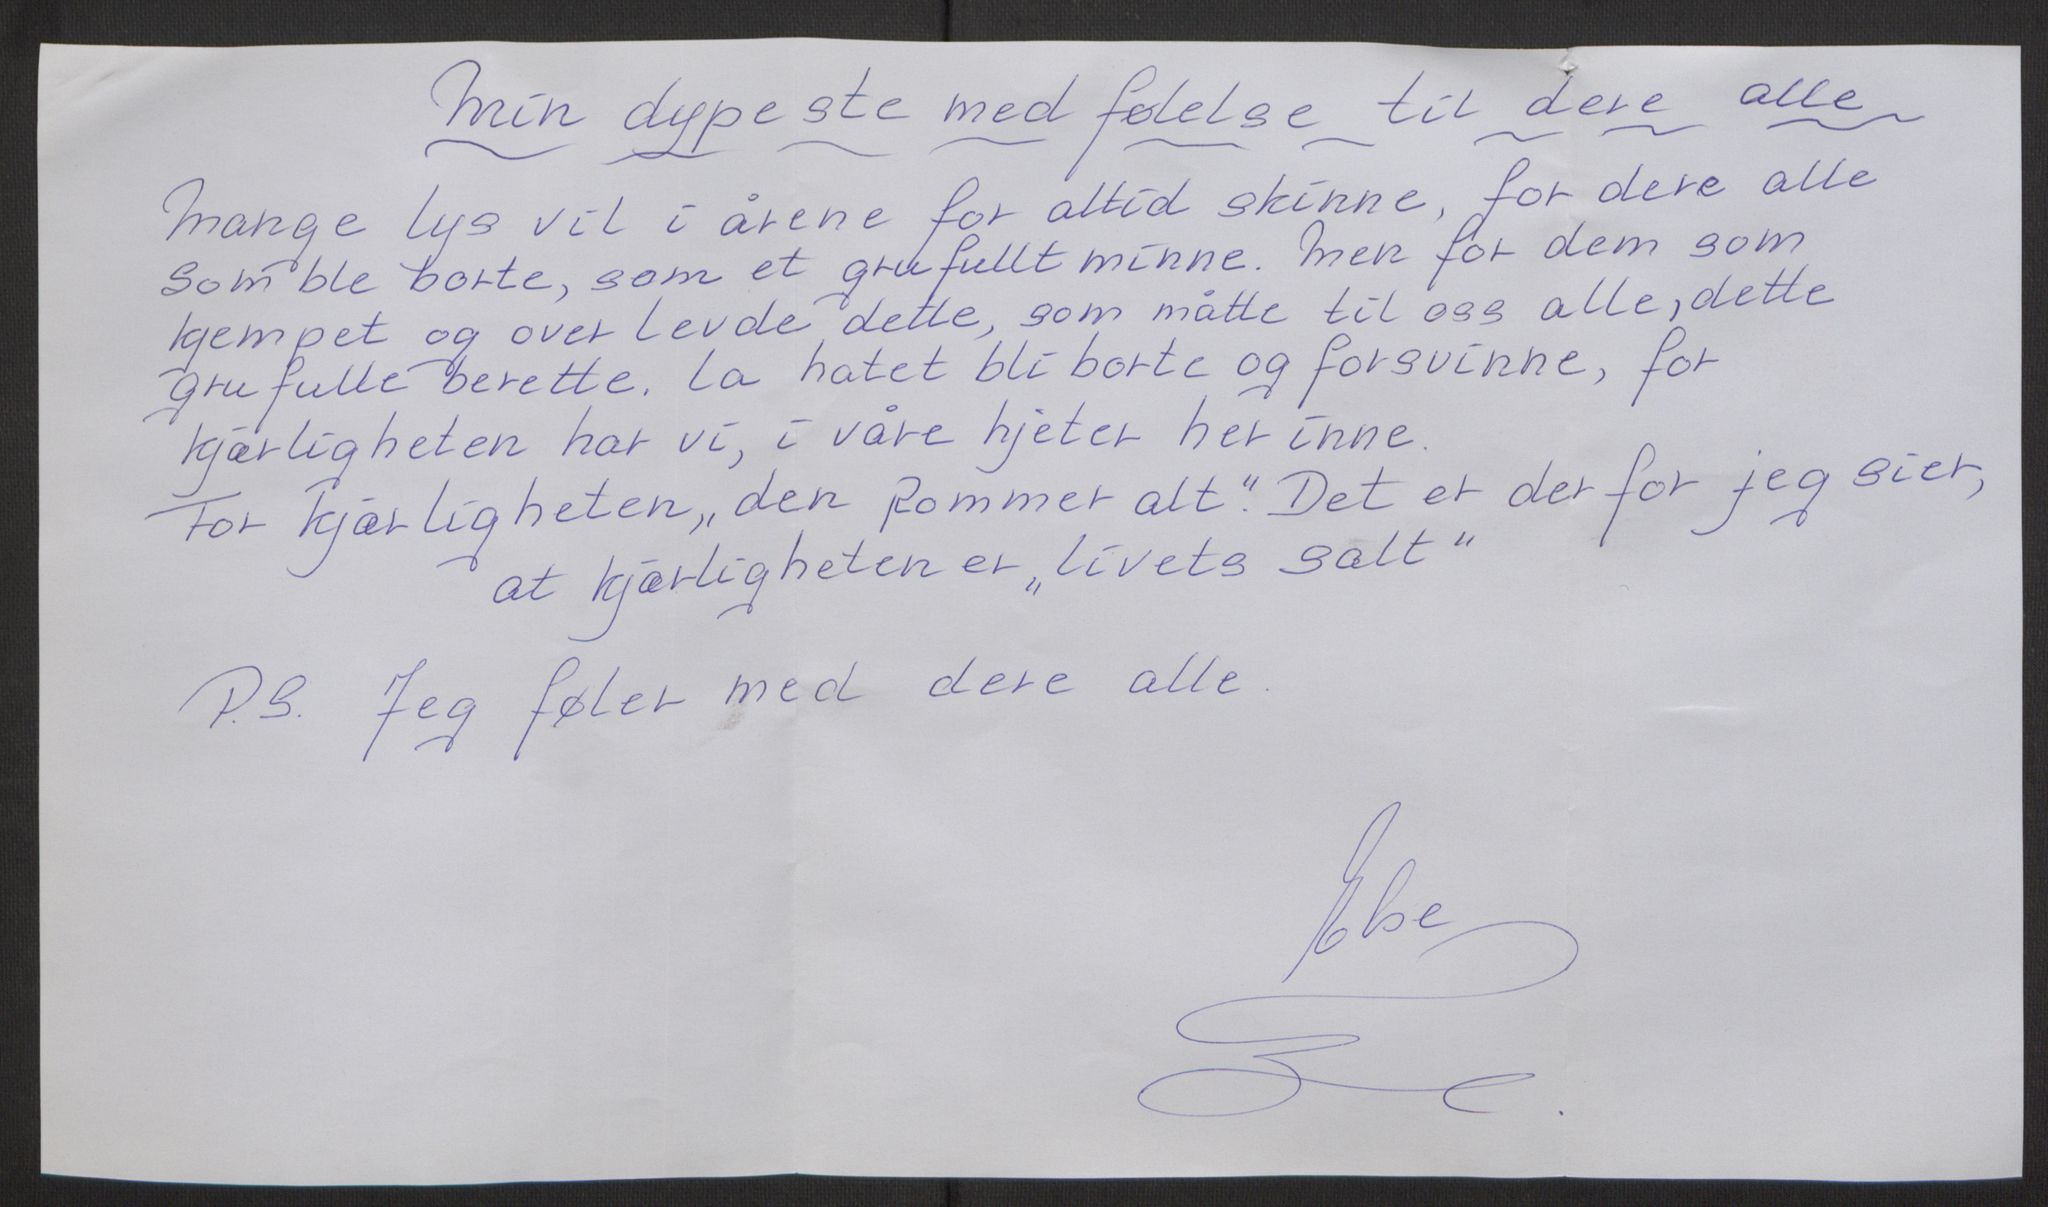 Min dypeste medfølelse til dere alle
Mange lys vil i årene for altid skinne, for dere alle
som ble borte, som et grufullt minne. Men for dem som
kjempet og overlevde dette, som måtte til oss alle, dette
grufulle berette. la hatet bli borte og forsvinne, for
kjærligheten har vi, i våre hjeter her inne.
For kjærligheten „den Rommer alt“. Det er derfor jeg sier,
at kjærligheten er „livets salt“
P.S. Jeg føler med dere alle.
Else